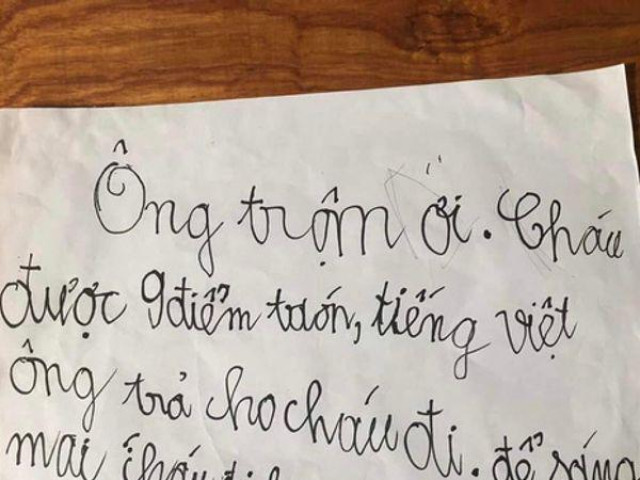 Ông trộm ơi. Cháu
được 9 điểm toán, tiếng việt
ông trả cho cháu đi. để sáng
mai cháu